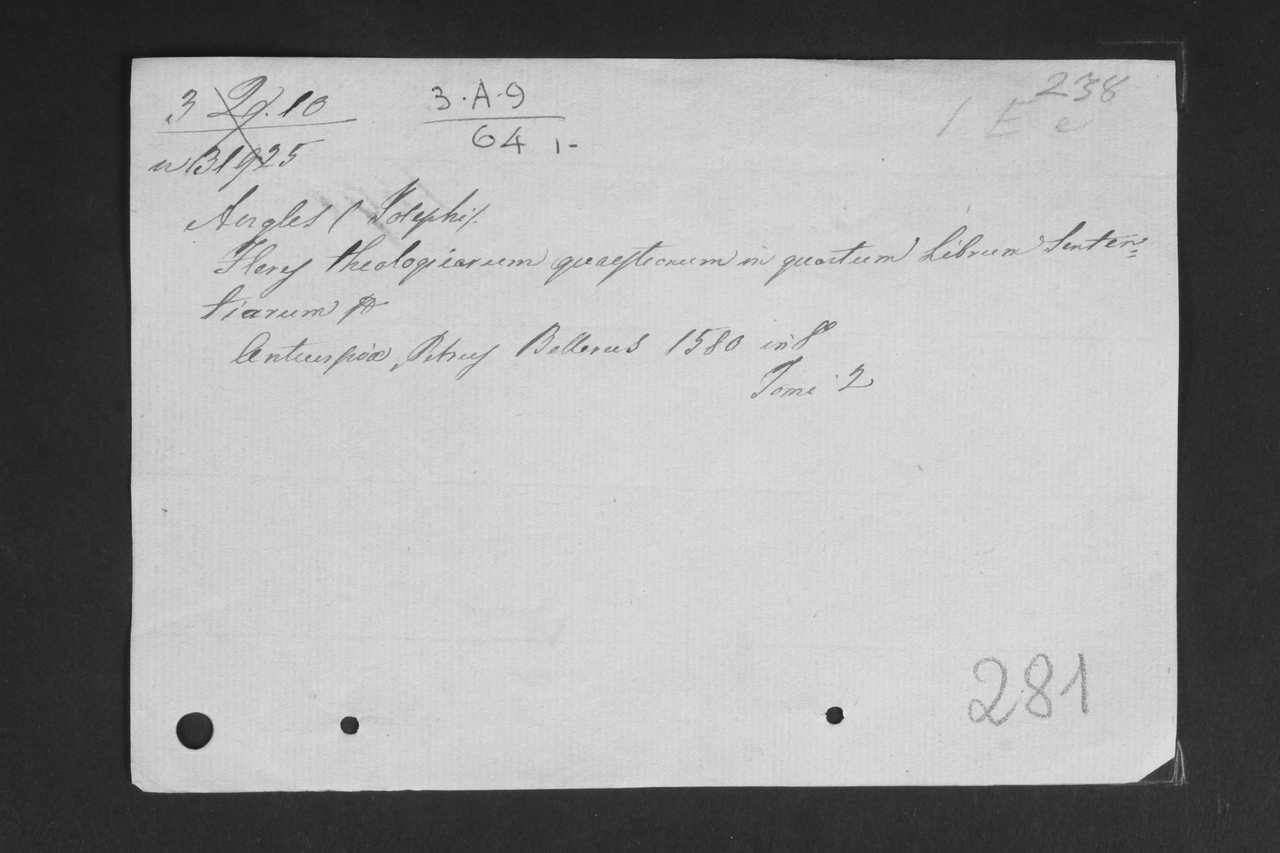 3 2d.10
n 31925
3·A·9
64 1-
238
1 E e
Angles (Josephi).
Flores theologicarum quaestionum in quartum Librum Senten=
tiarum &
Antuerpiae, Petrus Bellerus 1580 in 8º
Tomi 2
281